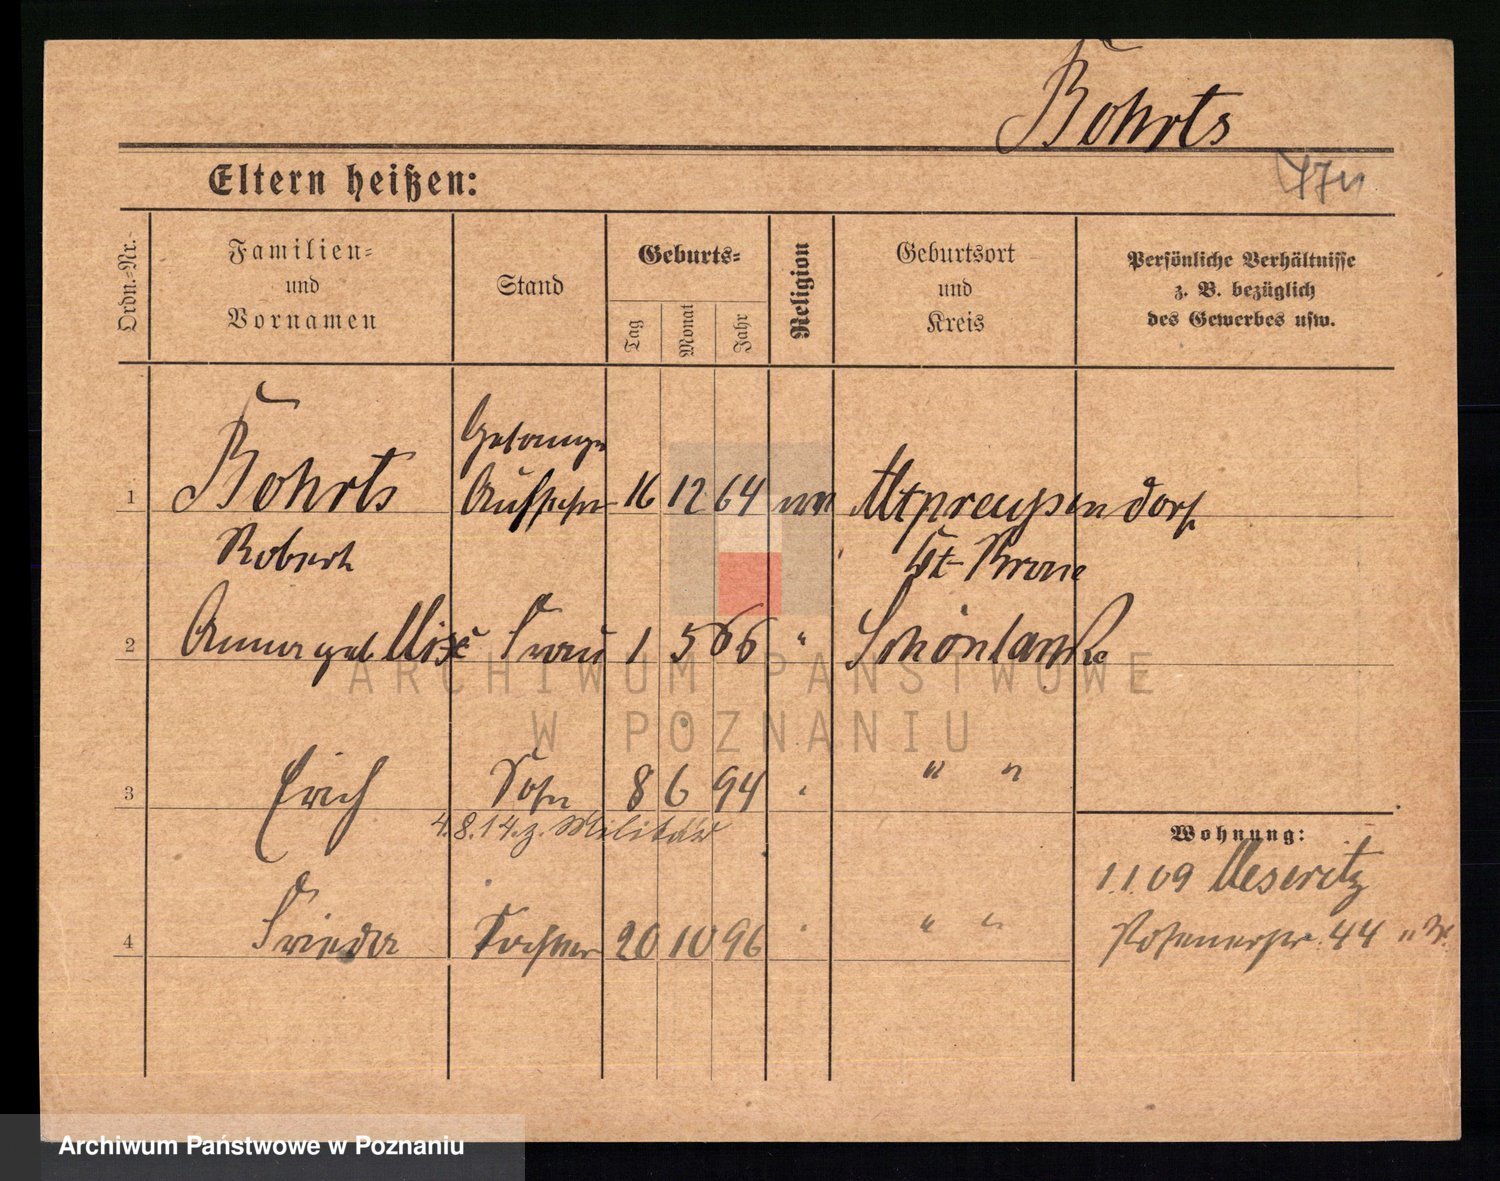 Bohrts
Eltern heißen:
Ordn.-Nr.
Familien-
und
Vornamen
Stand
Geburts-
Tag
Monat
Jahr
Religion
Geburtsort
und
Kreis
Persönliche Verhältnisse
z. B. bezüglich
des Gewerbes usw.
Gefangn
1 Bohrts Aufseher 16 12 64 Altpreußendorf
Robert Dt-Krone
2 Anna geb. Frau 1 5 66 " Schönlanke
3 Erich Sohn 8 6 94 " "
4.8.14. z. Militär
Wohnung:
1.1.09 Meseritz
4 Frieda Tochter 20 10 96 " " Posenerstr. 44
ARCHIWUM PAŃSTWOWE
W POZNANIU
Archiwum Państwowe w Poznaniu